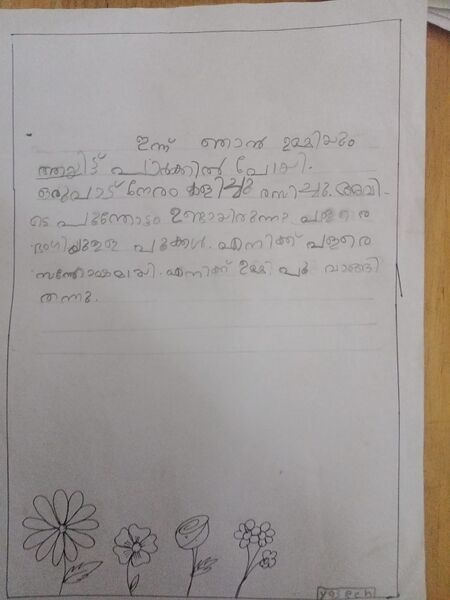 ഇന്ന് ഞാൻ ഉമ്മിയും
അയിട്ട് പാർക്കിൽ പോയി.
ഒരുപാട് നേരം കളിച്ചു രസിച്ചു. അവി-
ടെ പൂന്തോട്ടം ഉണ്ടായിരുന്നു. വളരെ
ഭംഗിയുള്ള പൂക്കൾ. എനിക്ക് വളരെ
സന്തോഷമായി. എനിക്ക് ഉമ്മി പൂ വാങ്ങി
തന്നു.